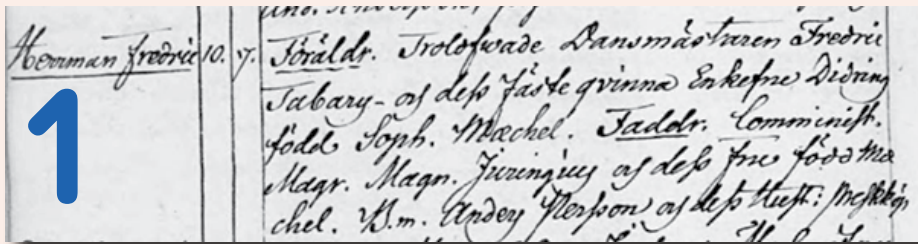 Herrman Fredric 10. 7. Föräldr. Trolofwade Dansmästaren Fredric
1
Tabary - och dess Fästeqvinna Enkefru Didring
född Soph. Mæchel. Faddr. Comminist.
Magr. Magn. Juringius och dess fru född Mæ
chel. B.m. Anders Persson och dess Hust: